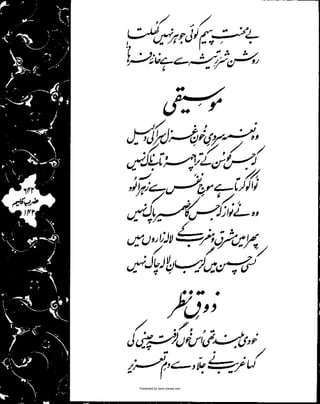 بے محنتِ پیہم کوئی جوہر نہیں کھلتا
روشن شررِ تیشہ سے ہے خانۂ فرہاد
موسیقی
وہ نغمہ سردیِ خونِ غزل سرا کی دلیل
کہ جس کو سن کے ترا چہرہ تابناک نہیں
نوا کو کرتا ہے موجِ نفس سے زہر آلود
وہ نے نواز کہ جس کا ضمیر پاک نہیں
پھرا میں مشرق و مغرب کے لالہ زاروں میں
کسی چمن میں گریبانِ لالہ چاک نہیں
ذوقِ نظر
خودی بلند تھی اُس خوں گرفتہ چینی کی
کہا غریب نے جلّاد سے دمِ تعزیر
۶۲۲
ضربِ کلیم
۱۲۲
Presented by www.ziaraat.com